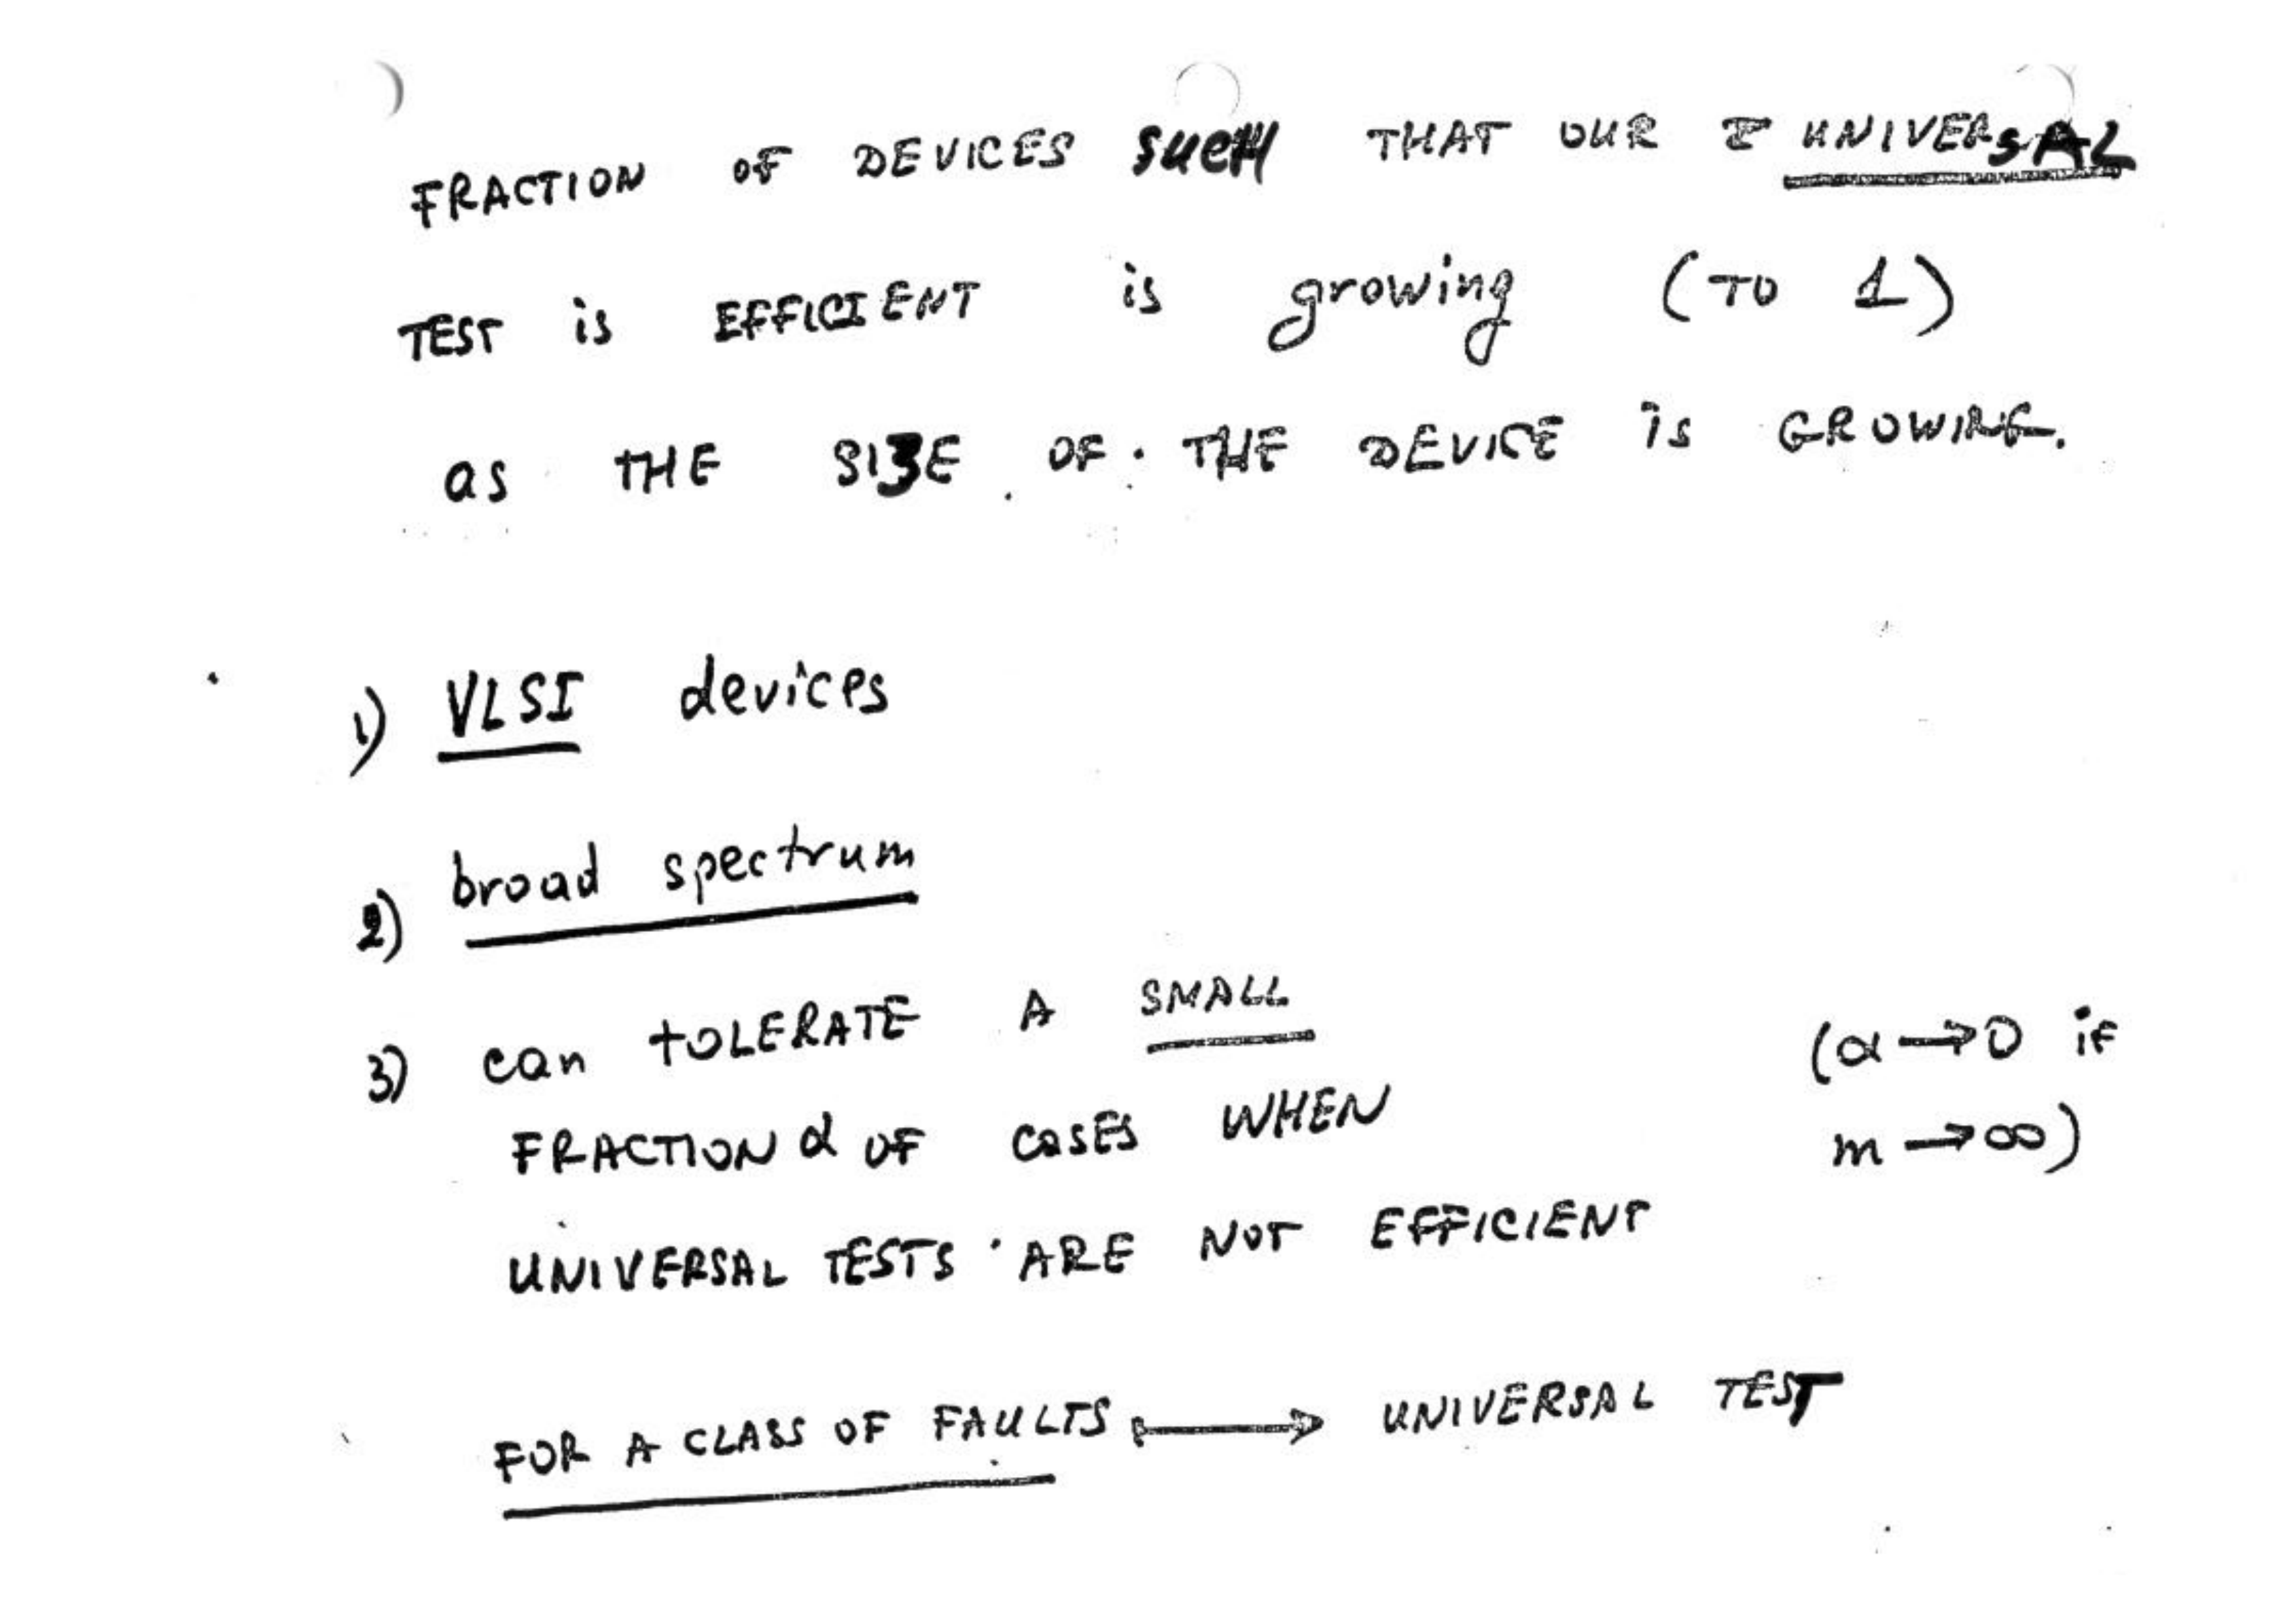 FRACTION OF DEVICES SUCH THAT OUR UNIVERSAL
TEST is EFFICIENT is growing (TO 1)
as THE SIZE OF THE DEVICE is GROWING.
1) VLSI devices
2) broad spectrum
3) can TOLERATE A SMALL
FRACTION α OF CASES WHEN
(α → 0 if
m → ∞)
UNIVERSAL TESTS ARE NOT EFFICIENT
FOR A CLASS OF FAULTS ⟼ UNIVERSAL TEST